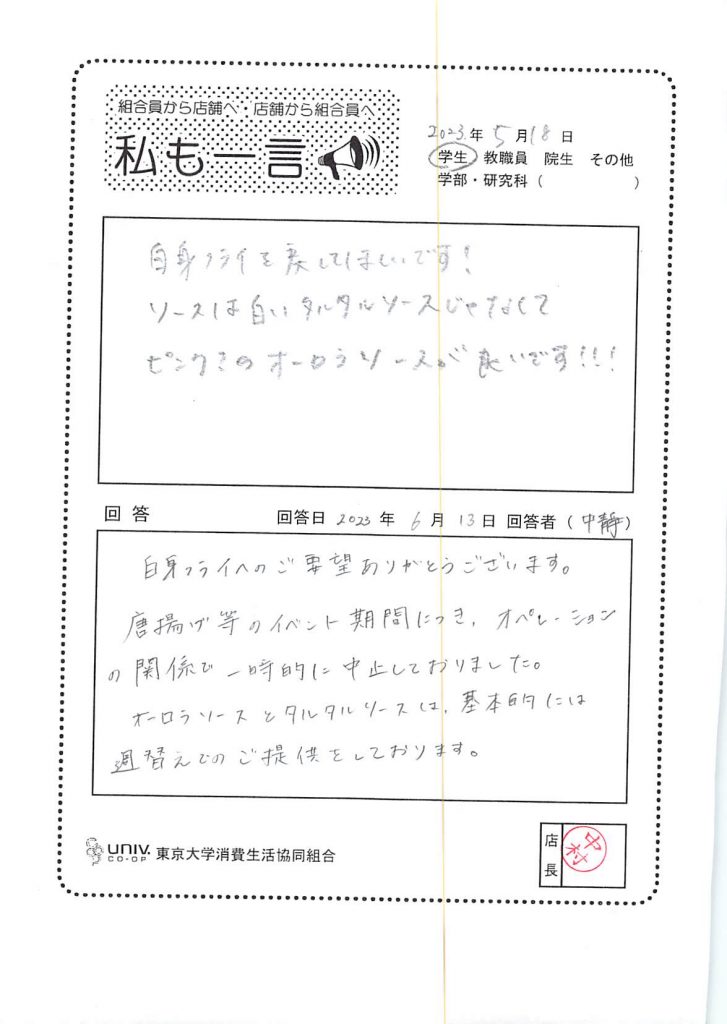 組合員から店舗へ・店舗から組合員へ
私も一言
2023.年 5月18日
学生 教職員 院生 その他
学部・研究科( )
白身フライを戻してほしいです!
ソースは白いタルタルソースじゃなくて
ピンクきのオーロラソースが良いです!!!
回答 回答日 2023年 6月 13日 回答者(中静)
白身フライへのご要望ありがとうございます。
唐揚げ等のイベント期間につき、オペレーション
の関係で一時的に中止しておりました。
オーロラソースとタルタルソースは、基本的には
週替えでのご提供をしております。
UNIV. CO-OP 東京大学消費生活協同組合
店長 中村